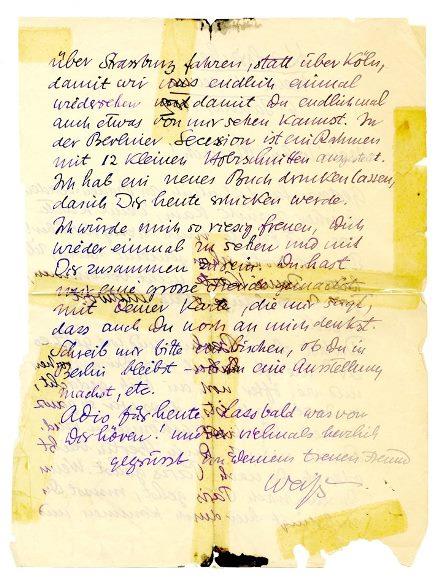 über Strassburg fahren, statt über Köln,
damit wir uns endlich einmal
wiedersehen und damit Du endlich mal
auch etwas von mir sehen kannst. In
der Berliner Secession ist ein Rahmen
mit 12 kleinen Holzschnitten ausgestellt.
Ich hab ein neues Buch drucken lassen,
das ich Dir heute schicken werde.
Ich würde mich so riesig freuen, Dich
wieder einmal zu sehen und mit
Dir zusammen zu sein. Du hast
mir eine grosse Freude gemacht
mit Deiner Karte, die mir zeigt,
dass auch Du noch an mich denkst.
Schreib mir bitte ein bischen, ob Du in
Berlin bleibst – eine Ausstellung
machst, etc.
Adio für heute! Lass bald was von
Dir hören! und sei vielmals herzlich
gegrüsst von Deinem treuen Freund
Weiß